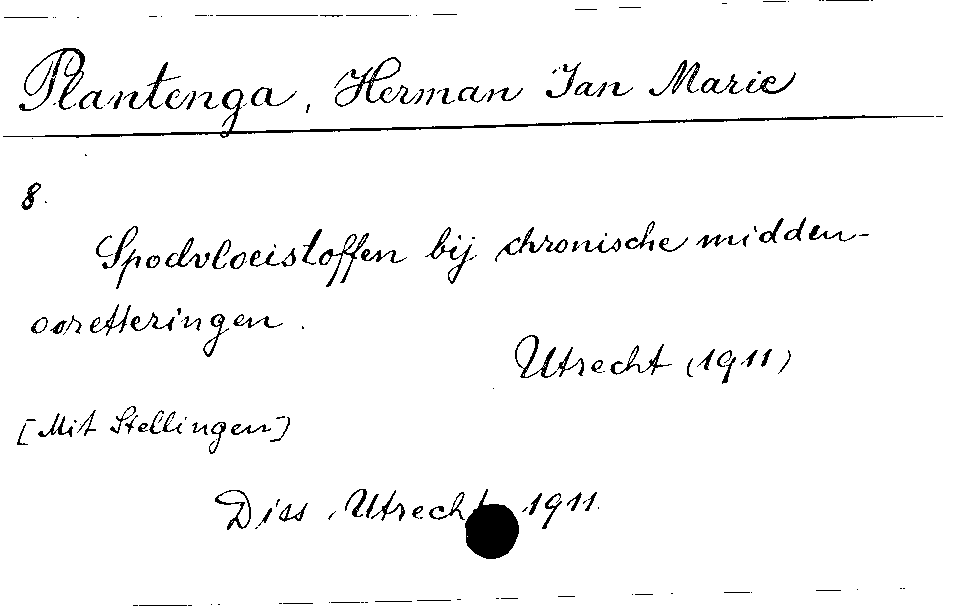 Plantenga, Herman Jan Marie
8.
Spoelvloeistoffen bij chronische midden-
ooretteringen.
Utrecht (1911)
[Mit Stellingen]
Diss. Utrecht 1911.